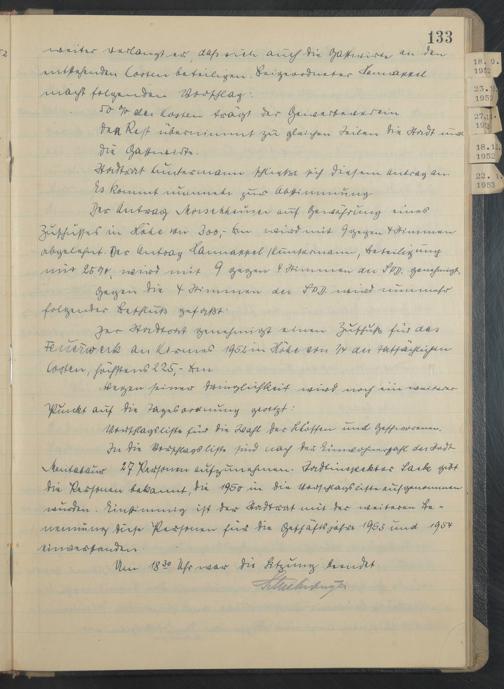 133
weiter verlangt er, daß sich auch die Gastwirte an den
entstehenden Kosten beteiligen. Beigeordneter
macht folgenden Vorschlag:
50 % der Kosten trägt der Gewerbeverein
den Rest übernimmt zu gleichen Teilen die Stadt und
die Gastwirte.
Stadtrat Kuntermann schließt sich diesem Antrag an.
Es kommt nunmehr zur Abstimmung.
Der Antrag auf Gewährung eines
Zuschusses in Höhe von 300,- DM wird mit 9 gegen 4 Stimmen
abgelehnt. Der Antrag /Kuntermann, Beteiligung
mit 25 %, wird mit 9 gegen 4 Stimmen der SPD. genehmigt.
Gegen die 4 Stimmen der SPD wird nunmehr
folgender Beschluß gefaßt:
Der Stadtrat genehmigt einen Zuschuß für das
Feuerwerk an Kirmes 1952 in Höhe von 1/4 der tatsächlichen
Kosten, höchstens 225,- DM
Wegen seiner Dringlichkeit wird noch ein weiterer
Punkt auf die Tagesordnung gesetzt:
Vorschlagsliste für die Wahl der Schöffen und Geschworenen.
In die Vorschlagsliste sind nach der Einwohnerzahl der Stadt
Montabaur 27 Personen aufzunehmen. Stadtinspektor gibt
die Personen bekannt, die 1950 in die Vorschlagsliste aufgenommen
wurden. Einstimmig ist der Stadtrat mit der weiteren Be-
nennung dieser Personen für die Geschäftsjahre 1953 und 1954
einverstanden
Um 18 30 Uhr war die Sitzung beendet
18. 9.
1952
1952
18. 11.
1952
22. 1.
1953